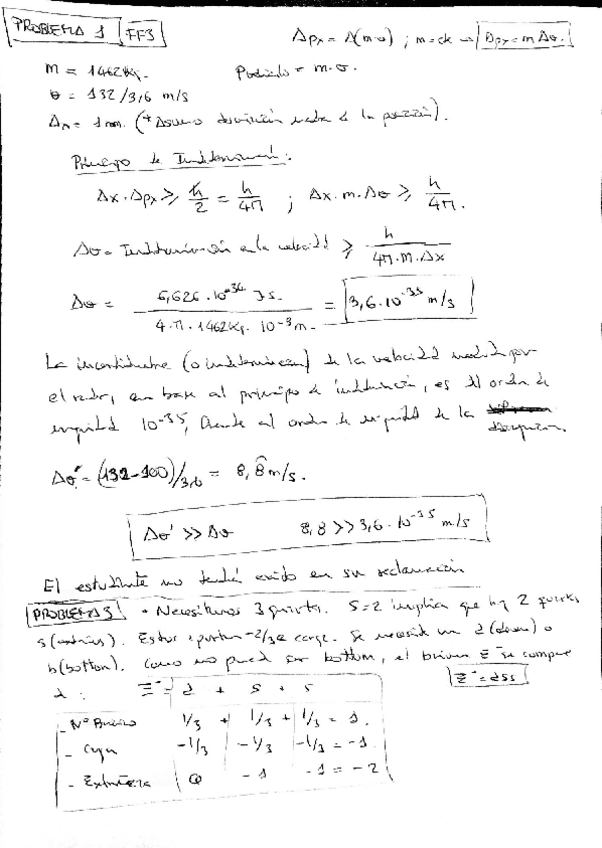 PROBLEMA 1 FF3
Δpx = Δ(m·v) ; m=ck → Δpx = m Δv.
m = 1462 Kg.
= m·v.
v = 132/3,6 m/s
Δx = 1mm. (* de la posición).
Principio de Indeterminación:
Δx·Δpx ≥ ħ/2 = h/4π ; Δx·m·Δv ≥ h/4π.
Δv = Indeterminación en la velocidad ≥ h/4π·m·Δx
Δv = 6,626·10⁻³⁴ J s. / 4·π·1462Kg·10⁻³m. = 3,6·10⁻³⁵ m/s
La incertidumbre (o indeterminación) de la velocidad medida por
el radar, en base al principio de indeterminación, es del orden de
magnitud 10⁻³⁵, al orden de magnitud de la
Δv' = (132-100)/3,6 = 8,8 m/s.
Δv' >> Δv 8,8 >> 3,6·10⁻³⁵ m/s
El estudiante no tendrá éxito en su reclamación
PROBLEMA 3 • Necesitamos 3 quarks. S=2 implica que hay 2 quarks
s (extraños). Estos aportan -2/3e carga. Se necesita un d (down) o
b (bottom). Como no puede ser bottom, el barion Ξ⁻ se compone
d: Ξ⁻ = d + s + s Ξ⁻=dss
- Nº Barionico 1/3 + 1/3 + 1/3 = 1.
- Carga -1/3 -1/3 -1/3 = -1
- Extrañeza 0 -1 -1 = -2